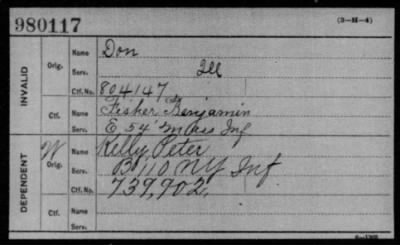 980117 (3-H-4)
INVALID
Orig. Name Don
Serv. Ill
Ctf. No. 804147
Ctf. Name Fisher Benjamin
Serv. E 54" Mass Inf
DEPENDENT
W Orig. Name Kelly, Peter
Serv. B 110 NY Inf
Ctf. No. 739,902.
Ctf. Name
Serv.